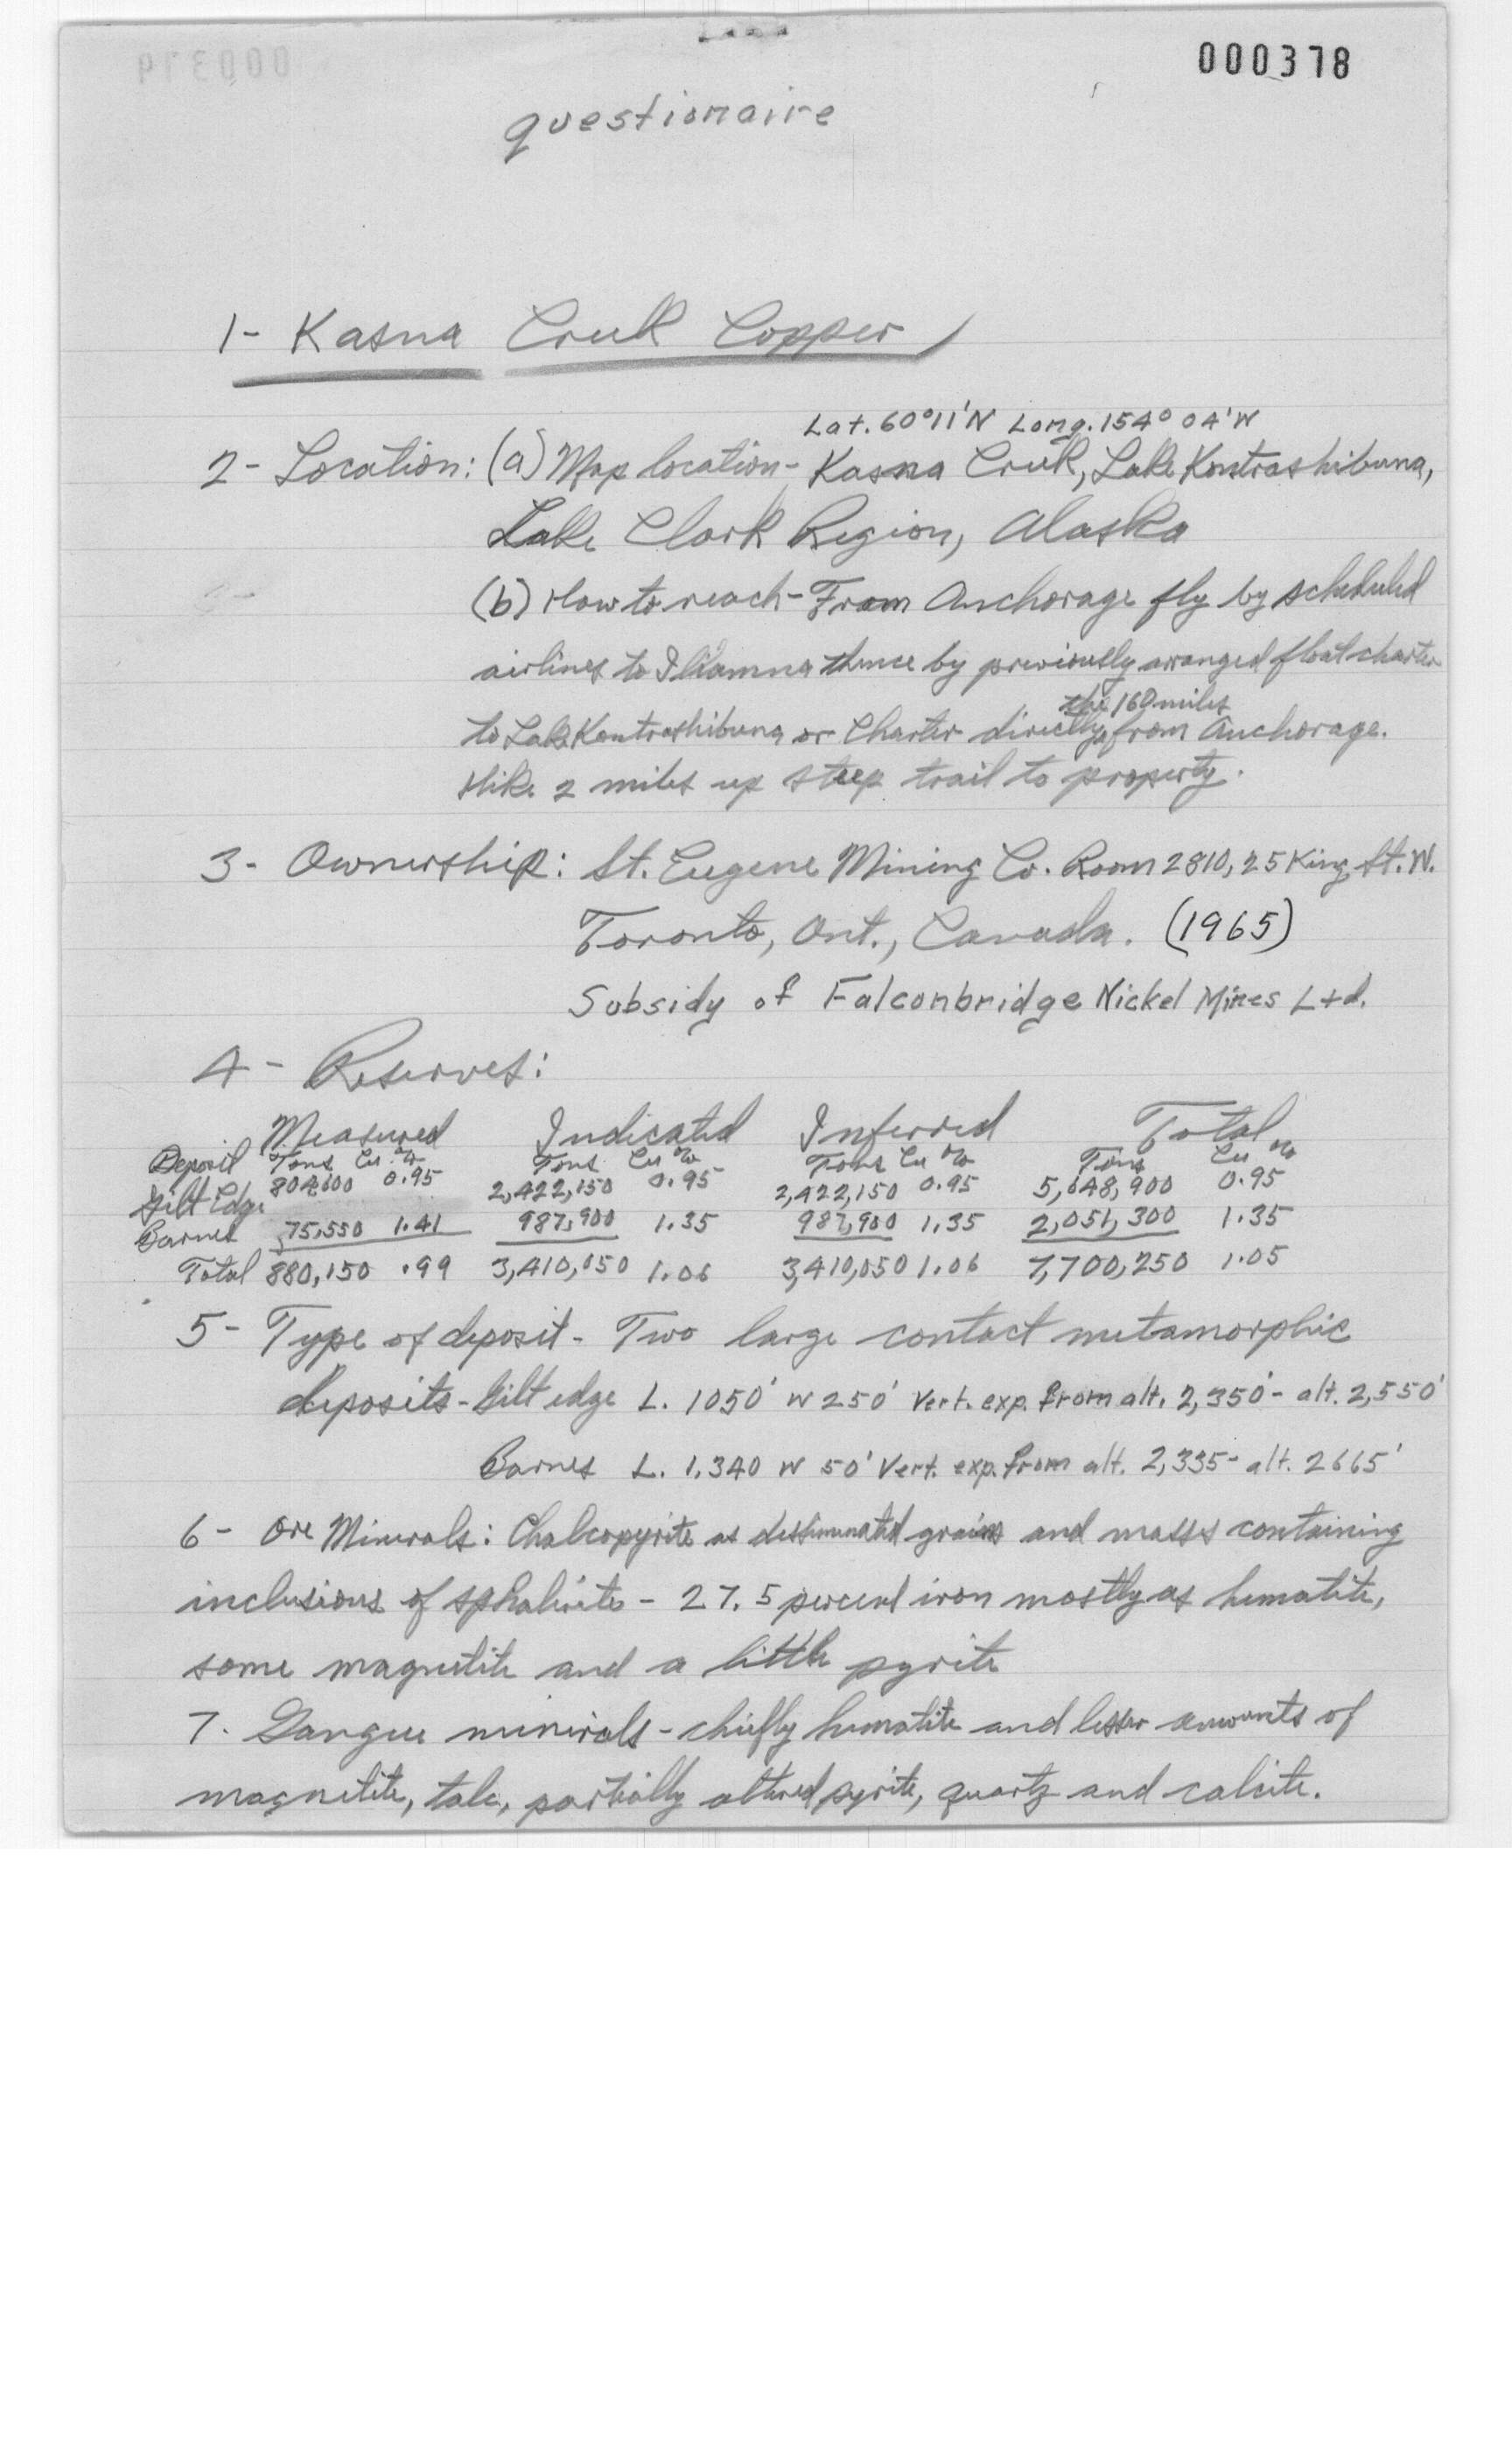 000378
questionaire
1- Kasna Creek Copper
Lat. 60°11'N Long. 154° 04'W
2- Location: (a) Map location- Kasna Creek, Lake Kontrashibuna,
Lake Clark Region, Alaska
(b) How to reach- From Anchorage fly by scheduled
airlines to Iliamna thence by previously arranged float charter
the 160 miles
to Lake Kontrashibuna or Charter directly from Anchorage.
Hike 2 miles up steep trail to property.
3- Ownership: St. Eugene Mining Co. Room 2810, 25 King St. W.
Toronto, Ont., Canada. (1965)
Subsidy of Falconbridge Nickel Mines Ltd.
4- Reserves:
Measured Indicated Inferred Total
Deposit Tons Cu % Tons Cu % Tons Cu % Tons Cu %
Gilt Edge 804,600 0.95 2,422,150 0.95 2,422,150 0.95 5,648,900 0.95
Barnes 75,550 1.41 987,900 1.35 987,900 1.35 2,051,300 1.35
Total 880,150 .99 3,410,050 1.06 3,410,050 1.06 7,700,250 1.05
5- Type of deposit- Two large contact metamorphic
deposits- Gilt edge L. 1050' W 250' Vert. exp. from alt. 2,350'- alt. 2,550'
Barnes L. 1,340 W 50' Vert. exp. from alt. 2,335- alt. 2665'
6- Ore Minerals: Chalcopyrite as dissiminated grains and masses containing
inclusions of sphalerite - 27.5 percent iron mostly as hematite,
some magnetite and a little pyrite
7. Gangue minerals- chiefly hematite and lesser amounts of
magnetite, talc, partially altered pyrite, quartz and calcite.